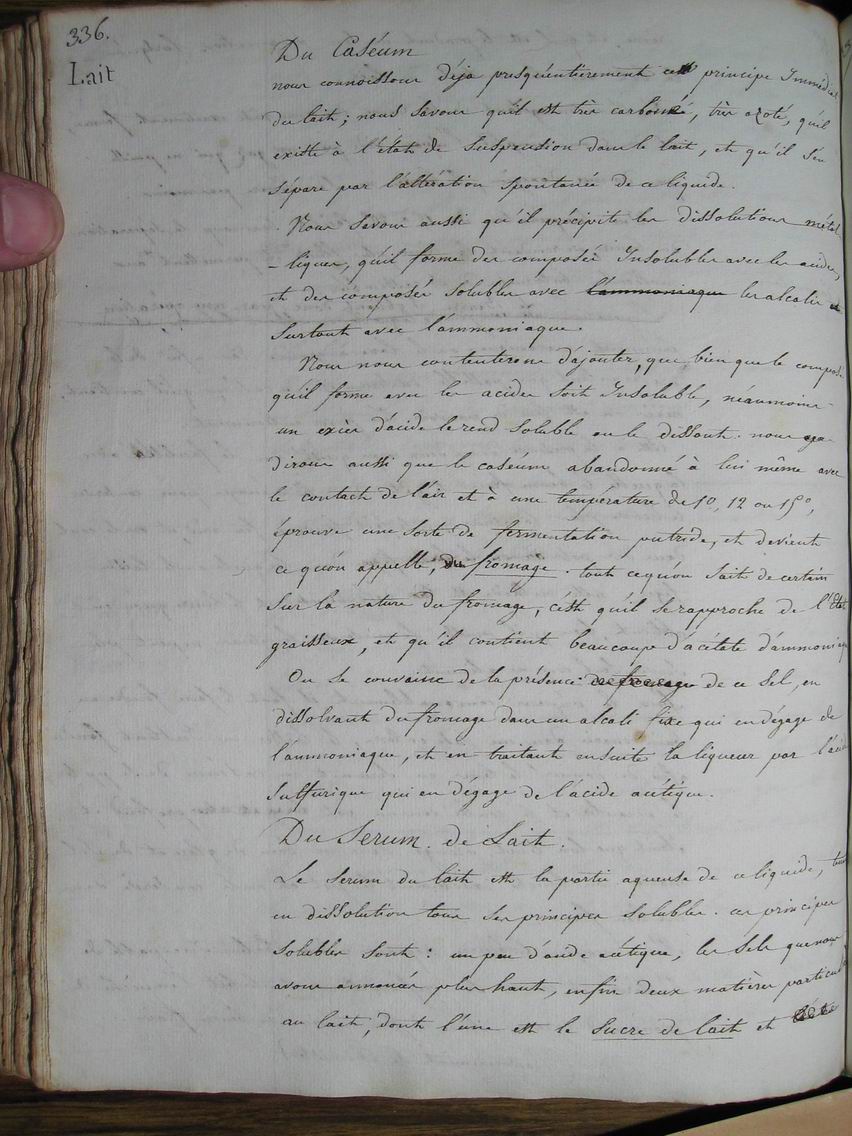 336.
Lait
Du Caséum
nous connoissons déja presqu'entièrement ce principe Immédiat
du lait; nous savons qu'il est très carboné, très azoté, qu'il
existe à l'état de suspension dans le lait, et qu'il s'en
sépare par l'altération spontanée de ce liquide.
Nous savons aussi qu'il précipite les dissolutions métal
-liques, qu'il forme des composés Insolubles avec les acides,
et des composés solubles avec l'ammoniaque les alcalis et
surtout avec l'ammoniaque.
Nous nous contenterons d'ajouter, que bien que le composé
qu'il forme avec les acides soit Insoluble, néanmoins
un excès d'acide le rend soluble ou le dissout. nous
dirons aussi que le caséum abandonné à lui même avec
le contact de l'air et à une température de 10, 12 ou 15°,
éprouve une sorte de fermentation putride, et devient
ce qu'on appelle, du fromage. tout ce qu'on sait de certain
sur la nature du fromage, c'est qu'il se rapproche de l'état
graisseux, et qu'il contient beaucoup d'acétate d'ammoniaque
On se convainc de la présence du fromage de ce sel, en
dissolvant du fromage dans un alcali fixe qui en dégage de
l'ammoniaque, et en traitant ensuite la liqueur par l'acide
sulfurique qui en dégage de l'acide acétique.
Du Serum de Lait.
Le serum du lait est la partie aqueuse de ce liquide, tenant
en dissolution tous ses principes solubles. ces principes
solubles sont: un peu d'acide acétique, les sels que nous
avons annoncés plus haut, enfin deux matières particul
au lait, dont l'une est le sucre de lait et